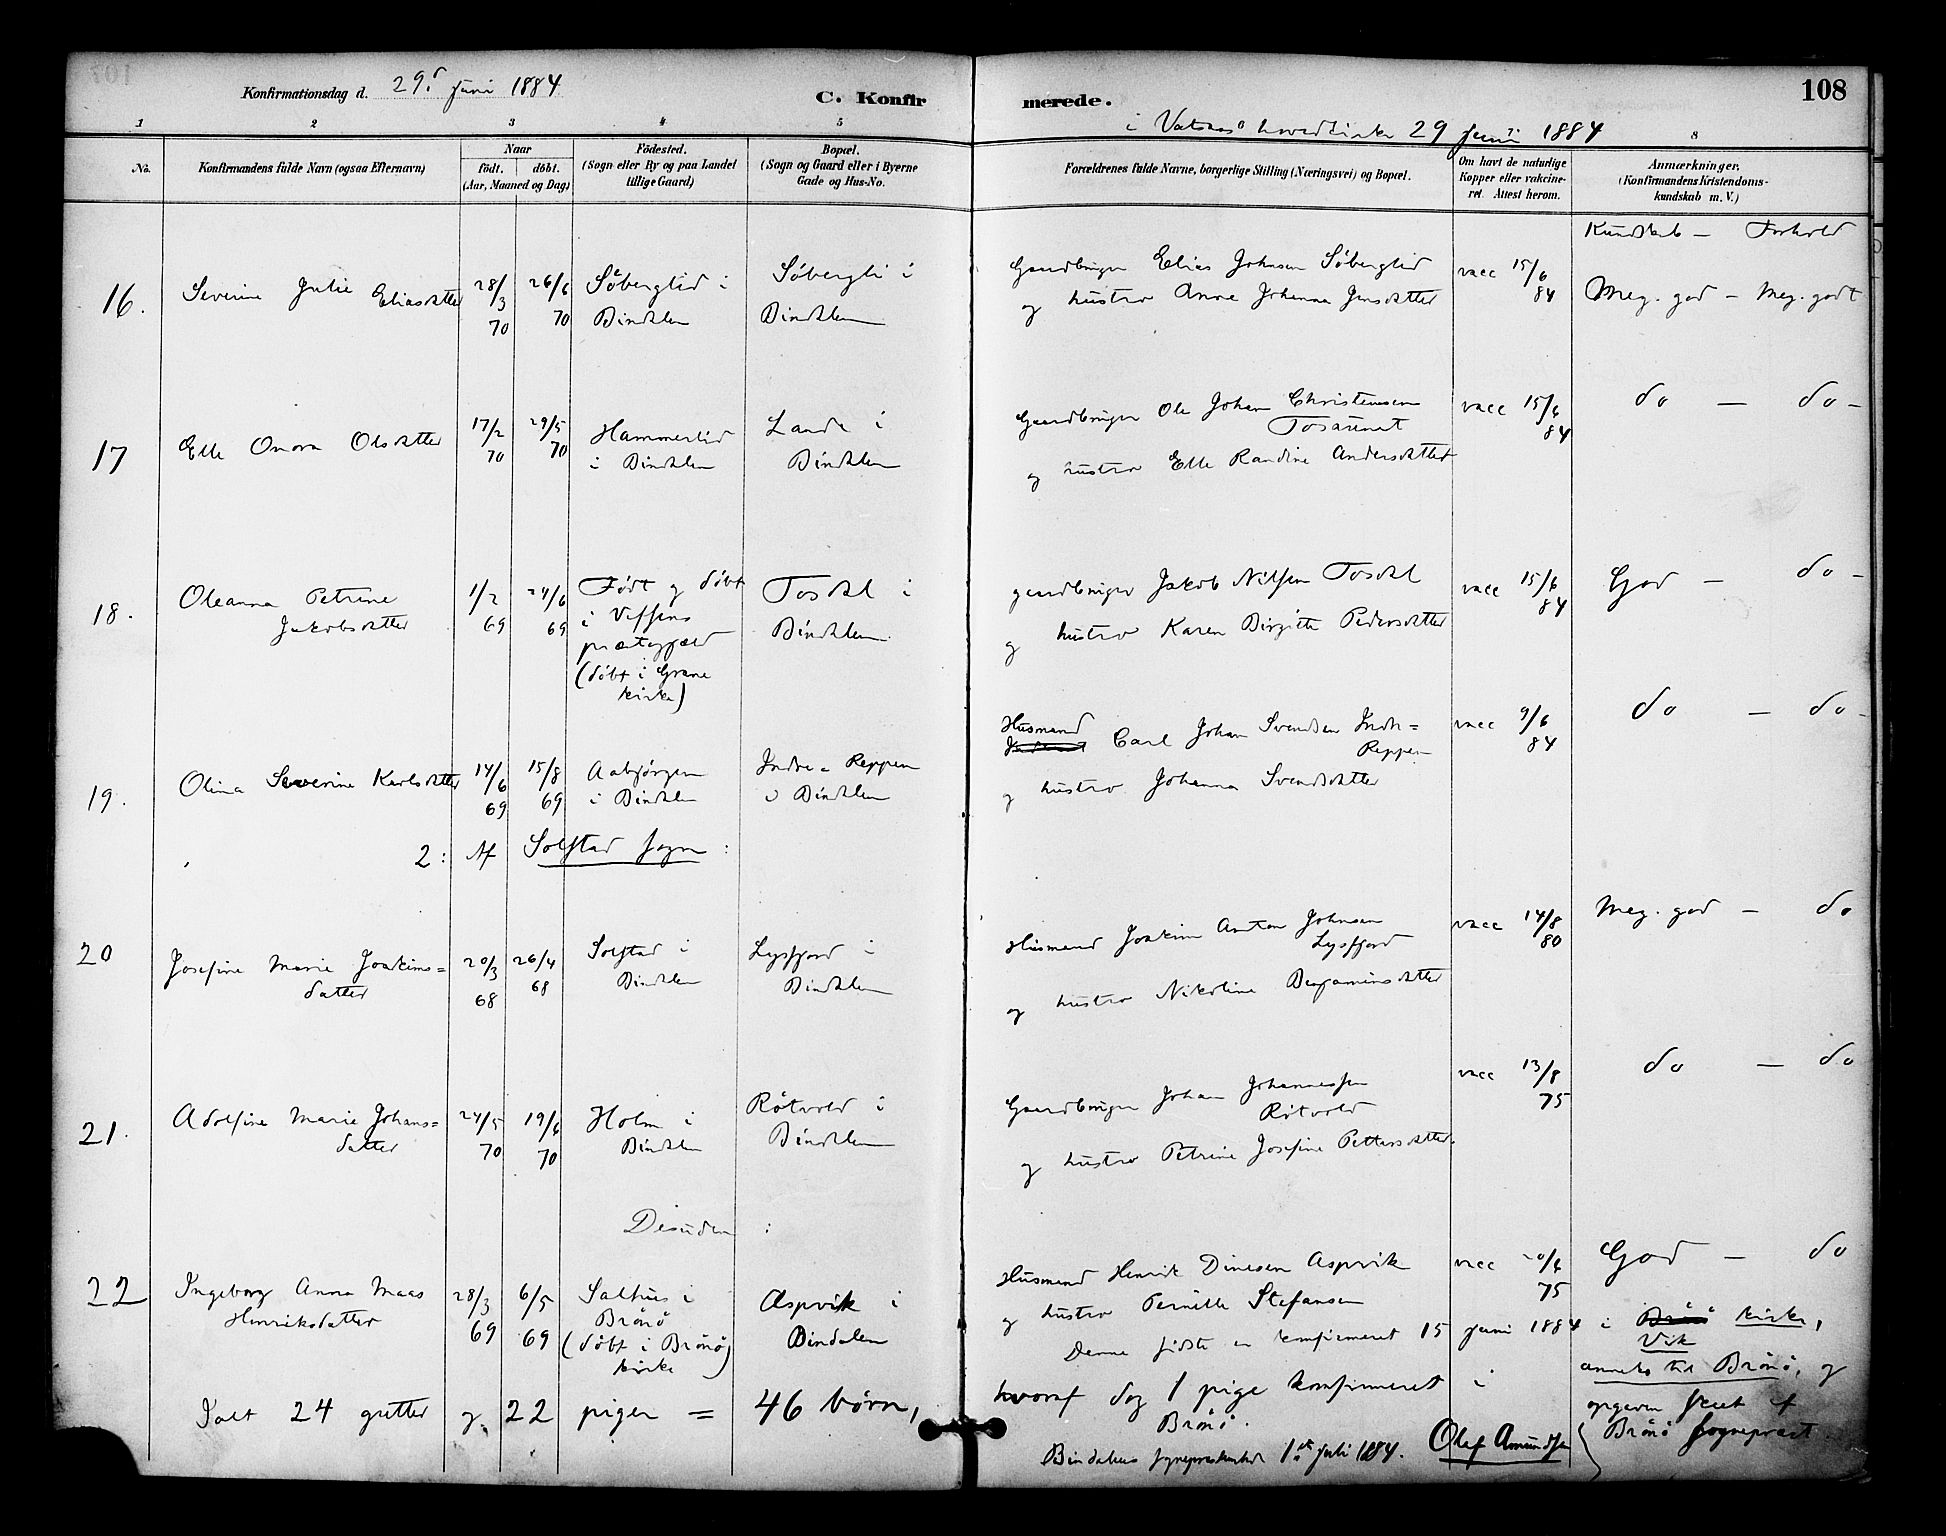 107
Konfirmationsdag d. 29. juni 1884
C. Konfirmerede.
i Vatsaas hovedkirke 29 juni 1884
108
1 2 3 4 5 8
No.
Konfirmandens fulde Navn (ogsaa Efternavn)
Naar
født. døbt.
(Aar, Maaned og Dag)
Fødested.
(Sogn eller By og paa Landet
tillige Gaard)
Bopæl.
(Sogn og Gaard eller i Byerne
Gade og Hus-No.
Forældrenes fulde Navne, borgerlige Stilling (Næringsvei) og Bopæl.
Om havt de naturlige
Kopper eller vakcine-
ret. Attest herom.
Anmærkninger.
(Konfirmandens Kristendoms-
kundskab m. V.)
Kundskab — Forhold
16.
Severine Julie Eliasdatter
28/3 70
26/6 70
Söberglid i
Bindalen
Söbergli i
Bindalen
Gaardbruger Elias Johnsen Söberglid
og hustro Anne Johanna Jensdatter
vacc 15/6 84
Meg. god — Meg. godt
17
Elle Onora Olsdatter
17/2 70
29/5 70
Hammerlid
i Bindalen
Lande i
Bindalen
Gaardbruger Ole Johan Christensen
Tosaunet
og hustro Elle Randine Andersdatter
vacc 15/6 84
do — do —
18.
Oleanna Petrine
Jakobsdatter
1/2 69
24/6 69
Født og döbt
i Vefsens
præstegjæld
(döbt i Grane
kirke)
Tosdal i
Bindalen
gaardbruger Jakob Nilsen Tosdal
og hustro Karen Birgitte Pedersdatter
vacc 15/6 84
God — do —
19.
Olina Severine Karlsdatter
14/6 69
15/8 69
Aabjörgen
i Bindalen
Indre = Reppen
i Bindalen
Husmand
Carl Johan Svendsen Indr=
Reppen
og hustro Johanna Svendsdatter
vacc 9/6 84
do — do —
2: Af Solstad sogn:
20
Josefine Marie Joakims=
datter
20/3 68
26/4 68
Solstad i
Bindalen
Lysfjord i
Bindalen
Husmand Joakim Anton Johnsen
Lysfjord
og hustro Nikoline Benjaminsdatter
vacc 14/8 80
Meg. god — do
21.
Adolfine Marie Johans=
datter
24/5 70
19/6 70
Holm i
Bindalen
Rötvold i
Bindalen
Gaardbruger Johan Johannessen
Rötvold
og hustro Petrine Josefine Pettersdatter.
vacc 13/8 75
do — do
Desuden:
22
Ingeborg Anna Maas
Henriksdatter
28/3 69
6/5 69
Salhus i
Brönö
(döbt i Brönö
kirke)
Aspvik i
Bindalen
Husmand Henrik Dinesen Aspvik
og hustro Pernille Stefansen
vacc 20/6 75
God — do
Denne sidste er konfirmeret 15 juni 1884 i Brönö kirke,
Vik
anneks til Brönö, og
opgaven skeet af
Brönö sognepræst.
Ialt 24 gutter og 22 piger = 46 börn,
hvoraf dog 1 pige konfirmeret i
Brönö.
Bindalens sognepræstembede 1. juli 1884. Olaf Amundsen